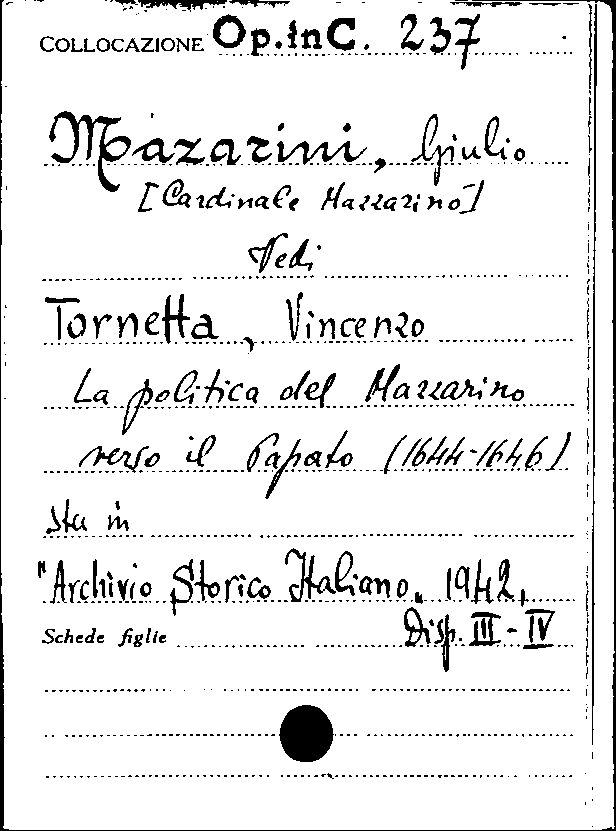 COLLOCAZIONE Op.in C. 237
Mazarini, Giulio
[Cardinale Mazzarino]
Vedi
Tornetta, Vincenzo
La politica del Mazzarino
verso il Papato (1644-1646)
sta in
"Archivio Storico Italiano" 1942,
Schede figlie Disp. III - IV